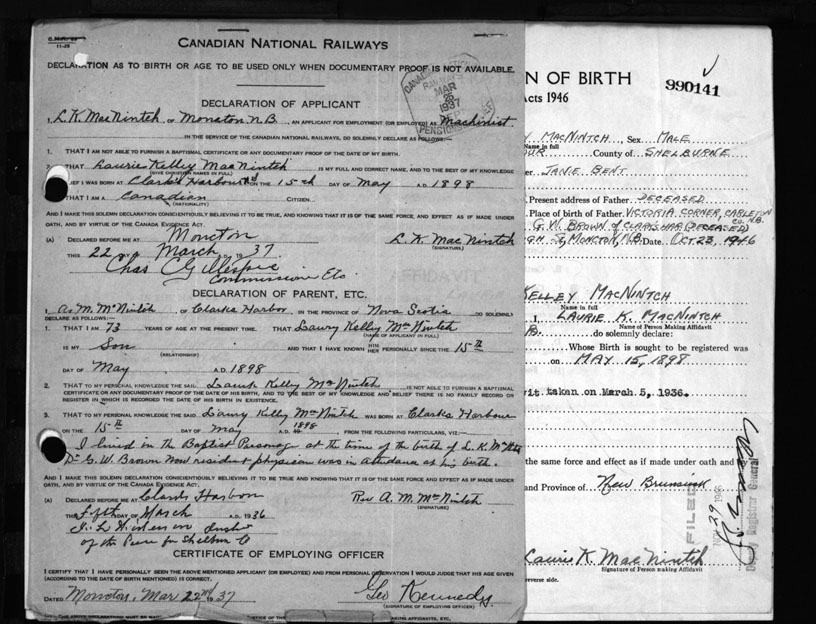 11-29
CANADIAN NATIONAL RAILWAYS
DECLARATION AS TO BIRTH OR AGE TO BE USED ONLY WHEN DOCUMENTARY PROOF IS NOT AVAILABLE.
DECLARATION OF APPLICANT
I, L.K. MacNintch OF Moncton N.B., AN APPLICANT FOR EMPLOYMENT (OR EMPLOYED) AS Machinist
IN THE SERVICE OF THE CANADIAN NATIONAL RAILWAYS, DO SOLEMNLY DECLARE AS FOLLOWS:—
1. THAT I AM NOT ABLE TO FURNISH A BAPTISMAL CERTIFICATE OR ANY DOCUMENTARY PROOF OF THE DATE OF MY BIRTH.
2. THAT Laurie Kelley MacNintch IS MY FULL AND CORRECT NAME, AND TO THE BEST OF MY KNOWLEDGE
(GIVE CHRISTIAN NAMES IN FULL)
I WAS BORN AT Clark's Harbour ON THE 15th DAY OF May A.D. 1898
THAT I AM A Canadian CITIZEN.
(NATIONALITY)
AND I MAKE THIS SOLEMN DECLARATION CONSCIENTIOUSLY BELIEVING IT TO BE TRUE, AND KNOWING THAT IT IS OF THE SAME FORCE, AND EFFECT AS IF MADE UNDER
OATH, AND BY VIRTUE OF THE CANADA EVIDENCE ACT.
(A) DECLARED BEFORE ME AT Moncton L.K. MacNintch
(SIGNATURE)
THIS 22 DAY OF March 1937.
Chas Gillespie
Commission Etc.
DECLARATION OF PARENT, ETC.
I, A. M. McNintch OF Clarks Harbor IN THE PROVINCE OF Nova Scotia DO SOLEMNLY
DECLARE AS FOLLOWS:—
1. THAT I AM 73 YEARS OF AGE AT THE PRESENT TIME. THAT Laury Kelly McNintch
(NAME OF APPLICANT IN FULL)
IS MY Son AND THAT I HAVE KNOWN HIM HER PERSONALLY SINCE THE 15th
(RELATIONSHIP)
DAY OF May A.D. 1898
2. THAT TO MY PERSONAL KNOWLEDGE THE SAID Kelly McNintch IS NOT ABLE TO FURNISH A BAPTISMAL
CERTIFICATE OR ANY DOCUMENTARY PROOF OF THE DATE OF BIRTH, AND TO THE BEST OF MY KNOWLEDGE AND BELIEF THERE IS NO FAMILY RECORD OR
REGISTER IN WHICH IS RECORDED THE DATE OF HIS BIRTH IN EXISTENCE.
3. THAT TO MY PERSONAL KNOWLEDGE THE SAID Laury Kelly McNintch WAS BORN AT Clarks Harbour
ON THE 15th DAY OF May A.D. 1898 FROM THE FOLLOWING PARTICULARS, VIZ:—
I lived in the Baptist Parsonage at the time of the birth of L. K. McNintch
Dr G.W. Brown Now resident physician was in attendance at his birth.
AND I MAKE THIS SOLEMN DECLARATION CONSCIENTIOUSLY BELIEVING IT TO BE TRUE AND KNOWING THAT IT IS OF THE SAME FORCE AND EFFECT AS IF MADE UNDER
OATH, AND BY VIRTUE OF THE CANADA EVIDENCE ACT.
(A) DECLARED BEFORE ME AT Clarks Harbor Rev A. M. McNintch
(SIGNATURE)
THIS Fifth DAY OF March A.D. 1936
of the Peace for Shelburne Co
CERTIFICATE OF EMPLOYING OFFICER
I CERTIFY THAT I HAVE PERSONALLY SEEN THE ABOVE MENTIONED APPLICANT (OR EMPLOYEE) AND FROM PERSONAL OBSERVATION I WOULD JUDGE THAT HIS AGE GIVEN
(ACCORDING TO THE DATE OF BIRTH MENTIONED) IS CORRECT.
DATED Moncton, Mar 22nd 1937 Geo Kennedy
(SIGNATURE OF EMPLOYING OFFICER)
CANADIAN
RAILWAYS
MAR
1937
PENSION
N OF BIRTH
990141
Acts 1946
Y MACNINTCH, Sex MALE
Name in full
OUR County of SHELBURNE
JANIE BENT
Present address of Father DECEASED
Place of birth of Father VICTORIA CORNER, CARLETON CO. N.B.
G.W. BROWN of CLARKS HAR (DECEASED)
MONCTON, N.B. Date OCT 23, 1946
KELLEY MACNINTCH
Name in full
I, LAURIE K. MACNINTCH
Name of Person Making Affidavit
B. do solemnly declare:
Whose Birth is sought to be registered was
on MAY 15, 1898
vit taken on March 5, 1936.
the same force and effect as if made under oath and
and Province of New Brunswick
FILED
NOV 29 1946
Deputy Registrar General
Laurie K MacNintch
Signature of Person making Affidavit
verse side.